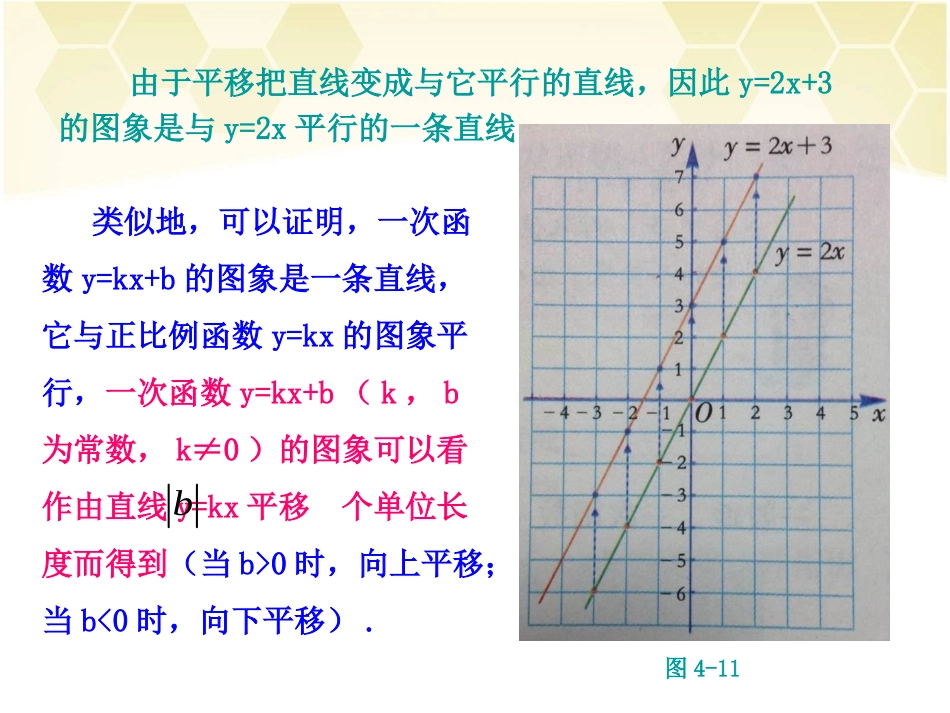 由于平移把直线变成与它平行的直线，因此 y=2x+3
的图象是与 y=2x 平行的一条直线
类似地，可以证明，一次函
数 y=kx+b 的图象是一条直线，
它与正比例函数 y=kx 的图象平
行，一次函数 y=kx+b （ k ， b
为常数， k≠0 ）的图象可以看
作由直线 y=kx 平移 个单位长
|b|
度而得到（当 b>0 时，向上平移；
当 b<0 时，向下平移）.
y
y = 2x+3
7
6
5
y = 2x
4
3
2
1
-4 -3 -2 -1 O 1 2 3 4 5 x
-1
-2
-3
-4
-5
-6
图 4-11